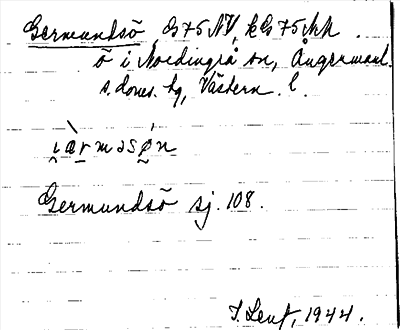 Germundsö, G75NV, kG75NN.
ö i Nordingrå sn, Ångermanl.
s. doms. hg, Västern. l.
i̯ærməsøn
Germundsö sj. 108.
1944.